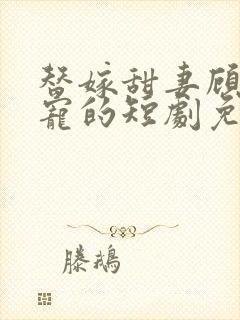 替嫁甜妻顾
宠的短劇免
滕鹅